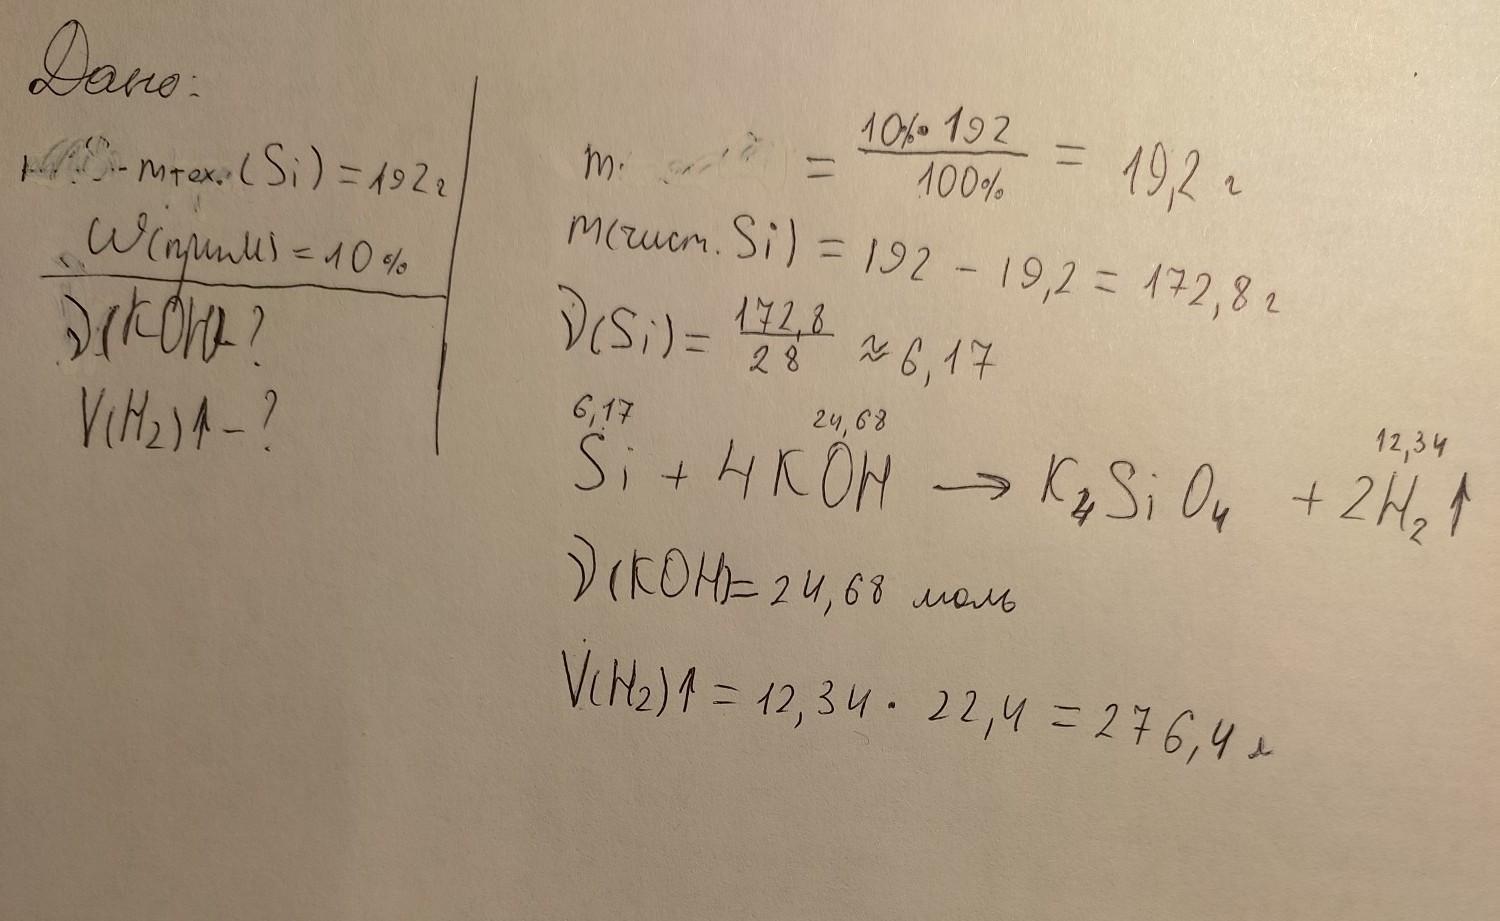 Дано:
mтех. (Si) = 192 г
W(прим) = 10 %
ν(KOH) - ?
V(H₂)↑ - ?
m = 10% · 192 / 100% = 19,2 г
m(чист. Si) = 192 - 19,2 = 172,8 г
ν(Si) = 172,8 / 28 ≈ 6,17
6,17 24,68 12,34
Si + 4KOH → K₄SiO₄ + 2H₂↑
ν(KOH) = 24,68 моль
V(H₂)↑ = 12,34 · 22,4 = 276,4 л